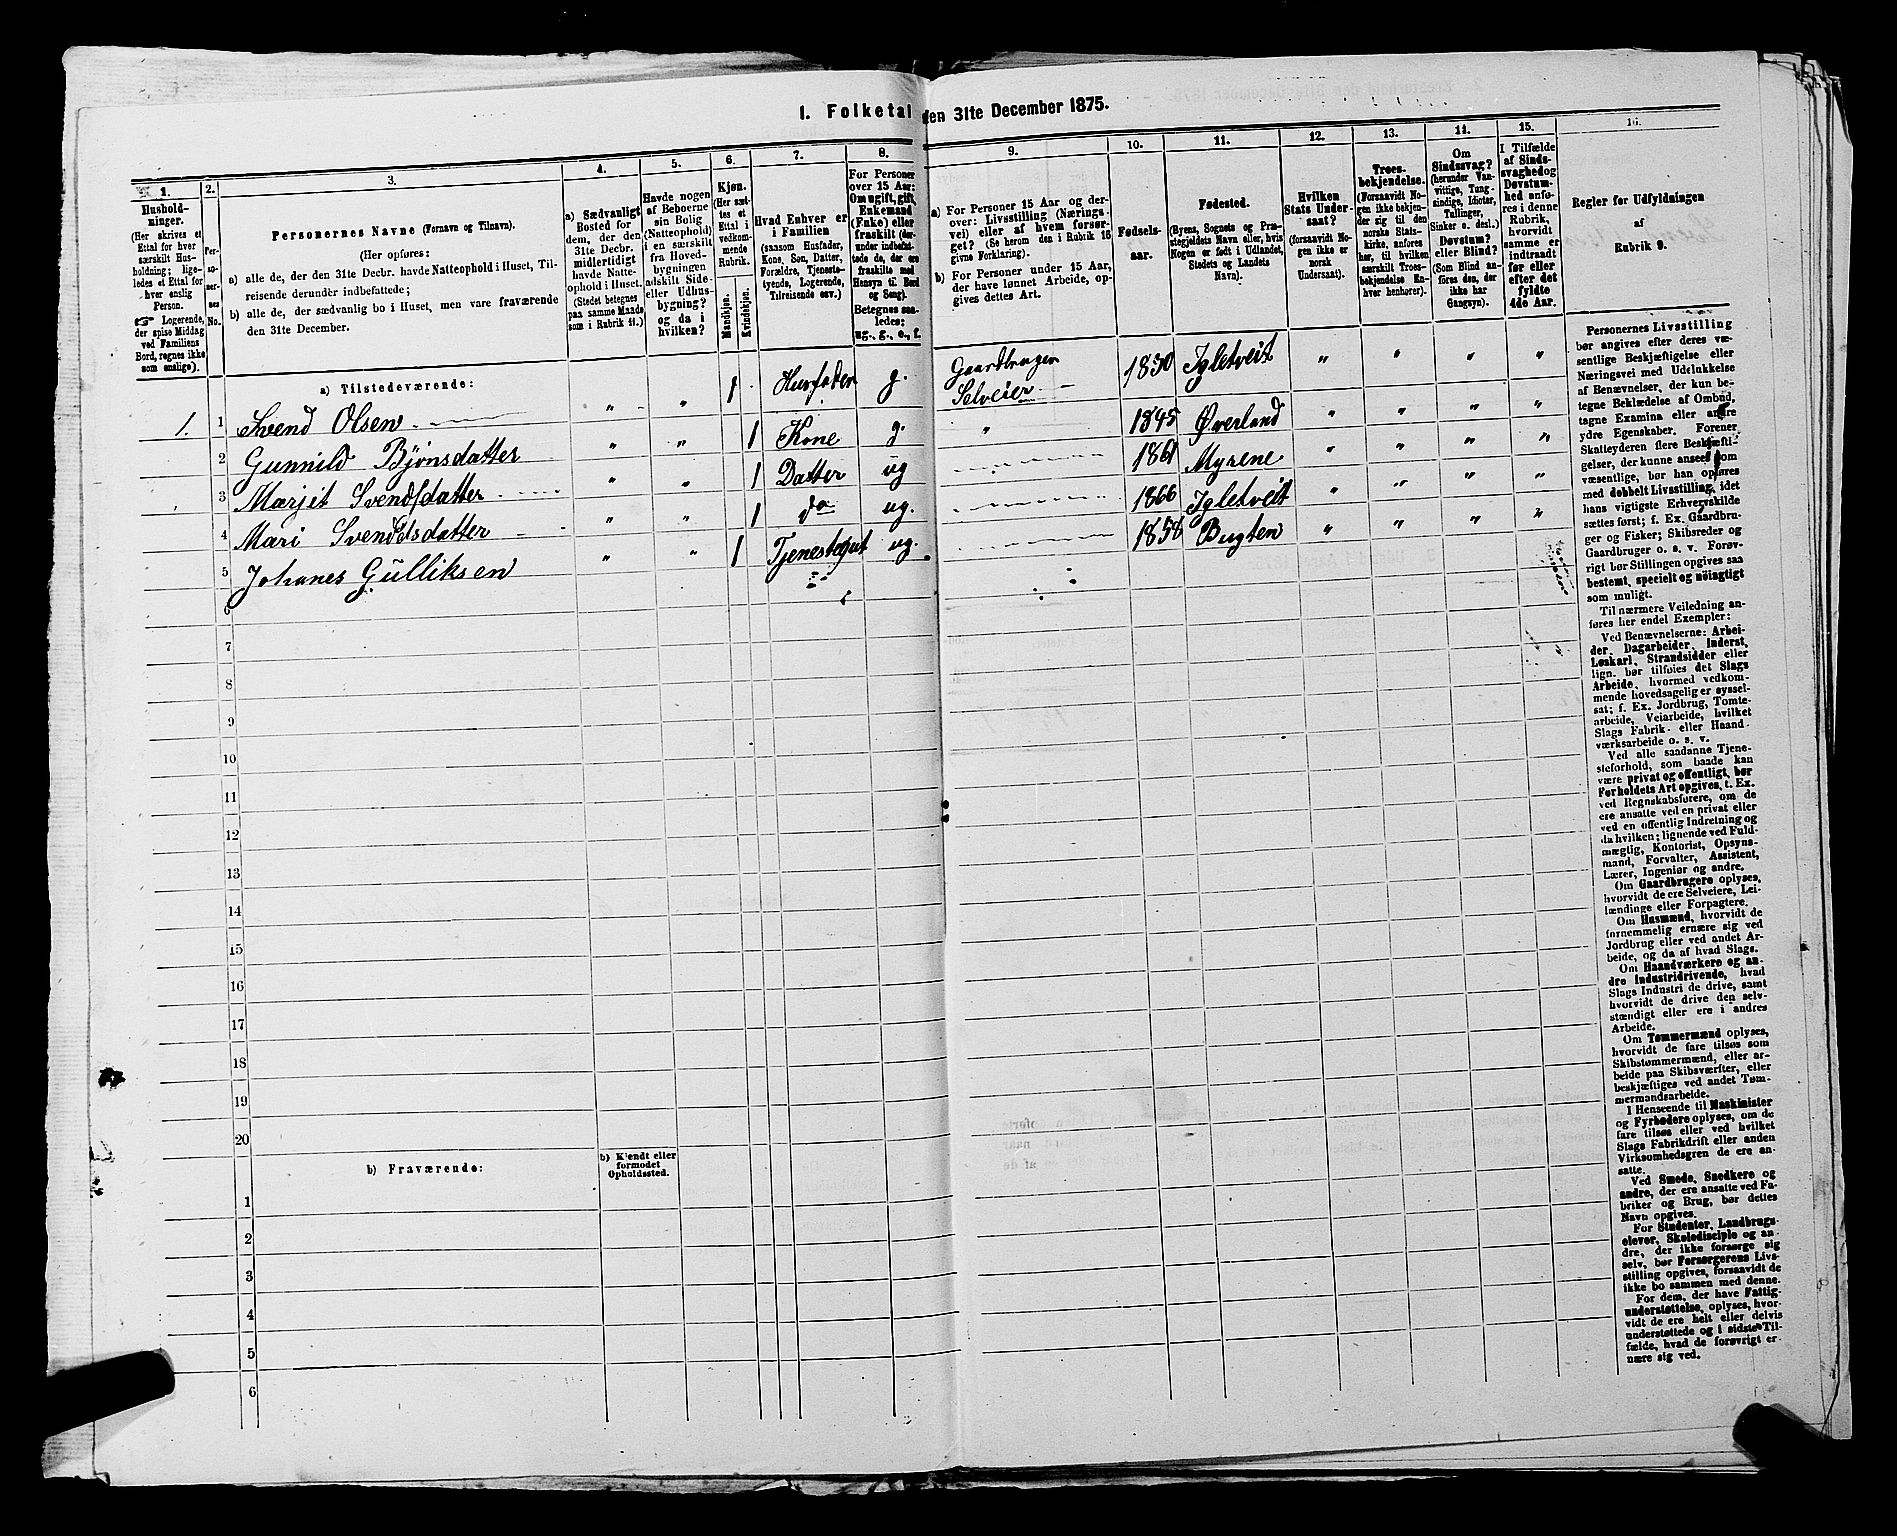 I. Folketal den 31te December 1875.
1.
2.
3.
4.
5.
6.
7.
8.
9.
10.
11.
12.
13.
14.
15.
16.
Hushold-
ninger.
(Her skrives et
Ettal for hver
særskilt Hus-
holdning; lige-
ledes et Ettal for
hver enslig
Person.
☞ Logerende,
der spise Middag
ved Familiens
Bord, regnes ikke
som enslige).
Per-
so-
ner-
nes
No.
Personernes Navne (Fornavn og Tilnavn).
(Her opføres:
a) alle de, der den 31te Decbr. havde Natteophold i Huset, Til-
reisende derunder indbefattede;
b) alle de, der sædvanlig bo i Huset, men vare fraværende
den 31te December.
a) Sædvanligt
Bosted for
dem, der den
31te Decbr.
midlertidigt
havde Natte-
ophold i Huset.
(Stedet betegnes
paa samme Maade
som i Rubrik 11.)
Havde nogen
af Beboerne
sin Bolig
(Natteophold)
i en særskilt
fra Hoved-
bygningen
adskilt Side-
eller Udhus-
bygning?
og da i
hvilken?
Kjøn.
(Her sæt-
tes et
Ettal i
vedkom-
mende
Rubrik.
Mandkjøn.
Kvindekjøn.
Hvad Enhver er
i Familien
(saasom Husfader,
Kone, Søn, Datter,
Forældre, Tjeneste-
tyende, Logerende,
Tilreisende osv.)
For Personer
over 15 Aar:
Om ugift, gift,
Enkemand
(Enke) eller
fraskilt (der-
under indbefat-
tede de, der ere
fraskilte med
Hensyn til Bord
og Seng).
Betegnes saa-
ledes:
ug., g., e., f.
a) For Personer 15 Aar og der-
over: Livsstilling (Nærings-
vei) eller af hvem forsør-
get? (Se herom den i Rubrik 16
givne Forklaring).
b) For Personer under 15 Aar,
der have lønnet Arbeide, op-
gives dettes Art.
Fødsels-
aar.
Fødested.
(Byens, Sognets og Præ-
stegjeldets Navn eller, hvis
Nogen er født i Udlandet,
Stedets og Landets
Navn).
Hvilken
Stats Under-
saat?
(forsaavidt No-
gen ikke er
norsk
Undersaat).
Troes-
bekjendelse.
(Forsaavidt No-
gen ikke bekjen-
der sig til den
norske Stats-
kirke, anføres
her, til hvilken
særskilt Troes-
bekjendelse En-
hver henhører).
Om
Sindssvag?
(herunder Van-
vittige, Tung-
sindige, Idioter,
Tullinger,
Sinker o. desl.)
Døvstum?
eller Blind?
(Som Blind an-
føres den, der
ikke har
Gangsyn).
I Tilfælde
af Sinds-
svaghed og
Døvstum-
hed anfø-
res i denne
Rubrik,
hvorvidt
samme er
indtraadt
før eller
efter det
fyldte
4de Aar.
Regler for Udfyldningen
af
Rubrik 9.
a) Tilstedeværende:
1. 1 Svend Olsen " " 1 Husfader g. Gaardbruger Selveier 1830 Igletveit " " " "
2 Gunnild Bjønsdatter " " 1 Kone g. " 1845 Øverland " " " "
3 Marjit Svendsdatter " " 1 Datter ug 1861 Myrene " " " "
4 Mari Svendsdatter " " 1 do ug. 1866 Igletveit " " "
5 Johanes Gulliksen " " 1 Tjenestegut ug. 1858 Bugten " " " "
6
7
8
9
10
11
12
13
14
15
16
17
18
19
20
b) Fraværende:
b) Kjendt eller
formodet
Opholdssted.
1
2
3
4
5
6
Personernes Livsstilling
bør angives efter deres væ-
sentlige Beskjæftigelse eller
Næringsvei med Udelukkelse
af Benævnelser, der kun be-
tegne Beklædelse af Ombud,
tagne Examina eller andre
ydre Egenskaber. Forener
Skatteyderen flere Beskjæfti-
gelser, der kunne ansees som
væsentlige, bør han opføres
med dobbelt Livsstilling, idet
hans vigtigste Erhvervskilde
sættes først; f. Ex. Gaardbru-
ger og Fisker; Skibsreder og
Gaardbruger o. s. v. Forøv-
rigt bør Stillingen opgives saa
bestemt, specielt og nöiagtigt
som muligt.
Til nærmere Veiledning an-
føres her endel Exempler:
Ved Benævnelserne: Arbei-
der, Dagarbeider, Inderst,
Løskarl, Strandsidder eller
lign. bør tilføies det Slags
Arbeide, hvormed vedkom-
mende hovedsagelig er syssel-
sat; f. Ex. Jordbrug, Tomte-
arbeide, Veiarbeide, hvilket
Slags Fabrik- eller Haand-
værksarbeide o. s. v.
Ved alle saadanne Tjene-
steforhold, som baade kan
være privat og offentligt, bør
Forholdets Art opgives, t. Ex.
ved Regnskabsførere, om de
ere ansatte ved en privat eller
ved en offentlig Indretning og
da hvilken; lignende ved Fuld-
mægtig, Kontorist, Opsyns-
mand, Forvalter, Assistent,
Lærer, Ingeniør og andre.
Om Gaardbrugere oplyses,
hvorvidt de ere Selveiere, Lei-
lændinge eller Forpagtere.
Om Husmænd, hvorvidt de
fornemmelig ernære sig ved
Jordbrug eller ved andet Ar-
beide, og da af hvad Slags.
Om Haandværkere og an-
dre Industridrivende, hvad
Slags Industri de drive, samt
hvorvidt de drive den selv-
stændigt eller ere i andres
Arbeide.
Om Tømmermænd oplyses,
hvorvidt de fare tilsøs som
Skibstømmermænd, eller ar-
beide paa Skibsværfter, eller
beskjæftiges ved andet Tøm-
mermandsarbeide.
I Henseende til Maskinister
og Fyrbødere oplyses, om de
fare tilsøs eller ved hvilket
Slags Fabrikdrift eller anden
Virksomhedsgren de ere an-
satte.
Ved Smede, Snedkere og
andre, der ere ansatte ved Fa-
briker og Brug, bør dettes
Navn opgives.
For Studenter, Landbrugs-
elever, Skoledisciple og an-
dre, der ikke forsørge sig
selv, bør Forsørgerens Livs-
stilling opgives, forsaavidt de
ikke bo sammen med denne.
For dem, der have Fattig-
understøttelse, oplyses, hvor-
vidt de ere helt eller delvis
understøttede og i sidste Til-
fælde, hvad de forøvrigt er-
nære sig ved.